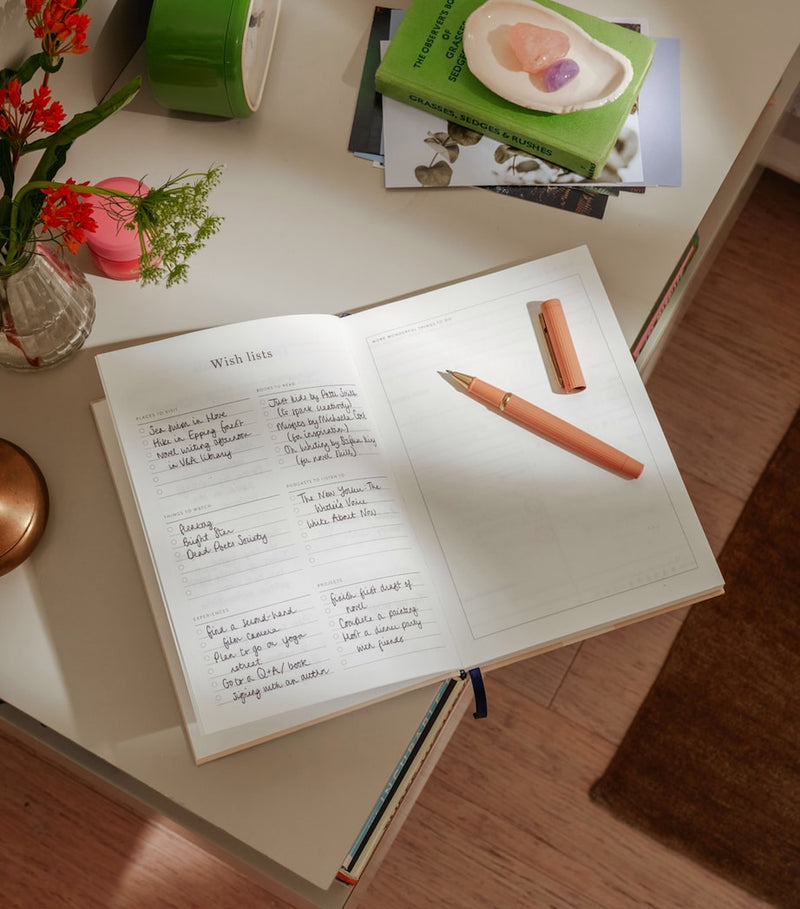 THE OBSERVER'S BOOK
OF
GRASSES
SEDGES
GRASSES, SEDGES & RUSHES
MORE WONDERFUL THINGS TO DO
Wish lists
PLACES TO VISIT
Sea swim in Hove
Hike in Epping Forest
Novel writing afternoon
in V&A library
BOOKS TO READ
Just Kids by Patti Smith
(to spark creativity)
Misfits by Michaela Coel
(for inspiration)
On Writing by Stephen King
(for novel skills)
THINGS TO WATCH
Fleabag
Bright Star
Dead Poets Society
PODCASTS TO LISTEN TO
The New Yorker: The
Writer's Voice
Write About Now
EXPERIENCES
Find a second-hand
film camera
Plan to go on yoga
retreat
Go to a Q+A/book
signing with an author
PROJECTS
Finish first draft of
novel
Complete a painting
Host a dinner party
with friends